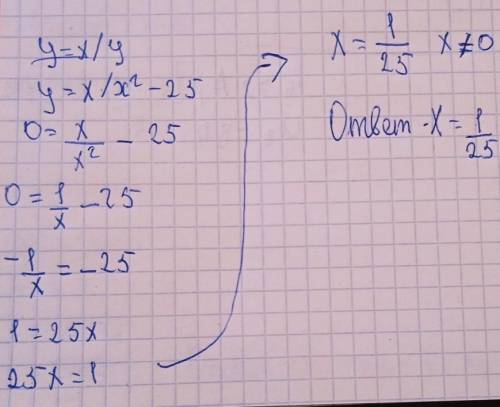 y=x/y
y=x/x²-25
0=x/x² - 25
0=1/x -25
-1/x = -25
1=25x
25x=1
x=1/25 x≠0
Ответ -x=1/25